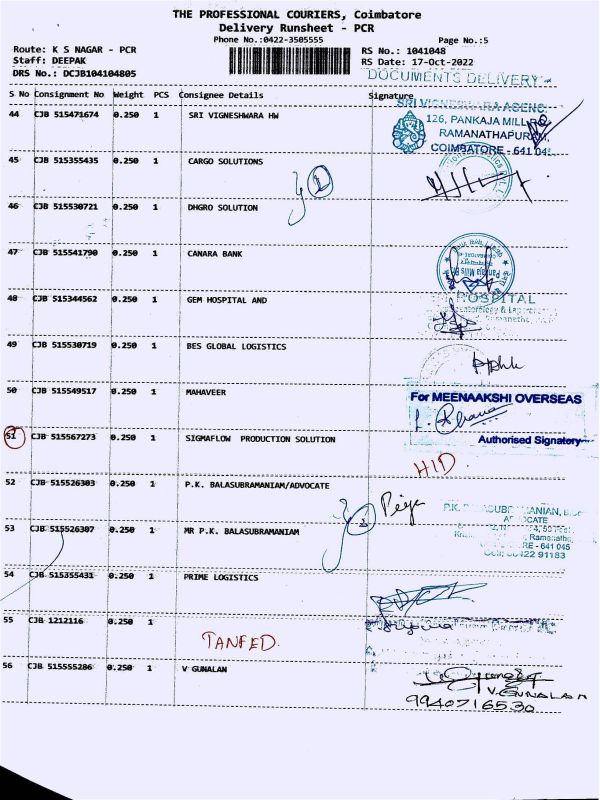 THE PROFESSIONAL COURIERS, Coimbatore
Delivery Runsheet - PCR
Phone No.:0422-3505555
Page No.:5
Route: K S NAGAR - PCR
RS No.: 1041048
Staff: DEEPAK
RS Date: 17-Oct-2022
DRS No.: DCJB104104805
DOCUMENTS DELIVERY
S No Consignment No Weight PCS Consignee Details Signature
44 CJB 515471674 0.250 1 SRI VIGNESHWARA HW
SRI VIGNESHWARA AGENC
126, PANKAJA MILL RO
RAMANATHAPURAM,
COIMBATORE - 641 045
45 CJB 515355435 0.250 1 CARGO SOLUTIONS
46 CJB 515530721 0.250 1 DHGRO SOLUTION
47 CJB 515541790 0.250 1 CANARA BANK
Pankaja Mills
48 CJB 515344562 0.250 1 GEM HOSPITAL AND
HOSPITAL
49 CJB 515530719 0.250 1 BES GLOBAL LOGISTICS
50 CJB 515549517 0.250 1 MAHAVEER
For MEENAAKSHI OVERSEAS
Authorised Signatory
51 CJB 515567273 0.250 1 SIGMAFLOW PRODUCTION SOLUTION
HID
52 CJB 515526303 0.250 1 P.K. BALASUBRAMANIAM/ADVOCATE
P.K. BALASUBRAMANIAN,
ADVOCATE
53 CJB 515526307 0.250 1 MR P.K. BALASUBRAMANIAM
Ramanatha
RE - 641 045
Cell: 98422 91183
54 CJB 515355431 0.250 1 PRIME LOGISTICS
55 CJB 1212116 0.250 1
TANFED
56 CJB 515555286 0.250 1 V GUNALAN
V. GUNALAN
9940716530